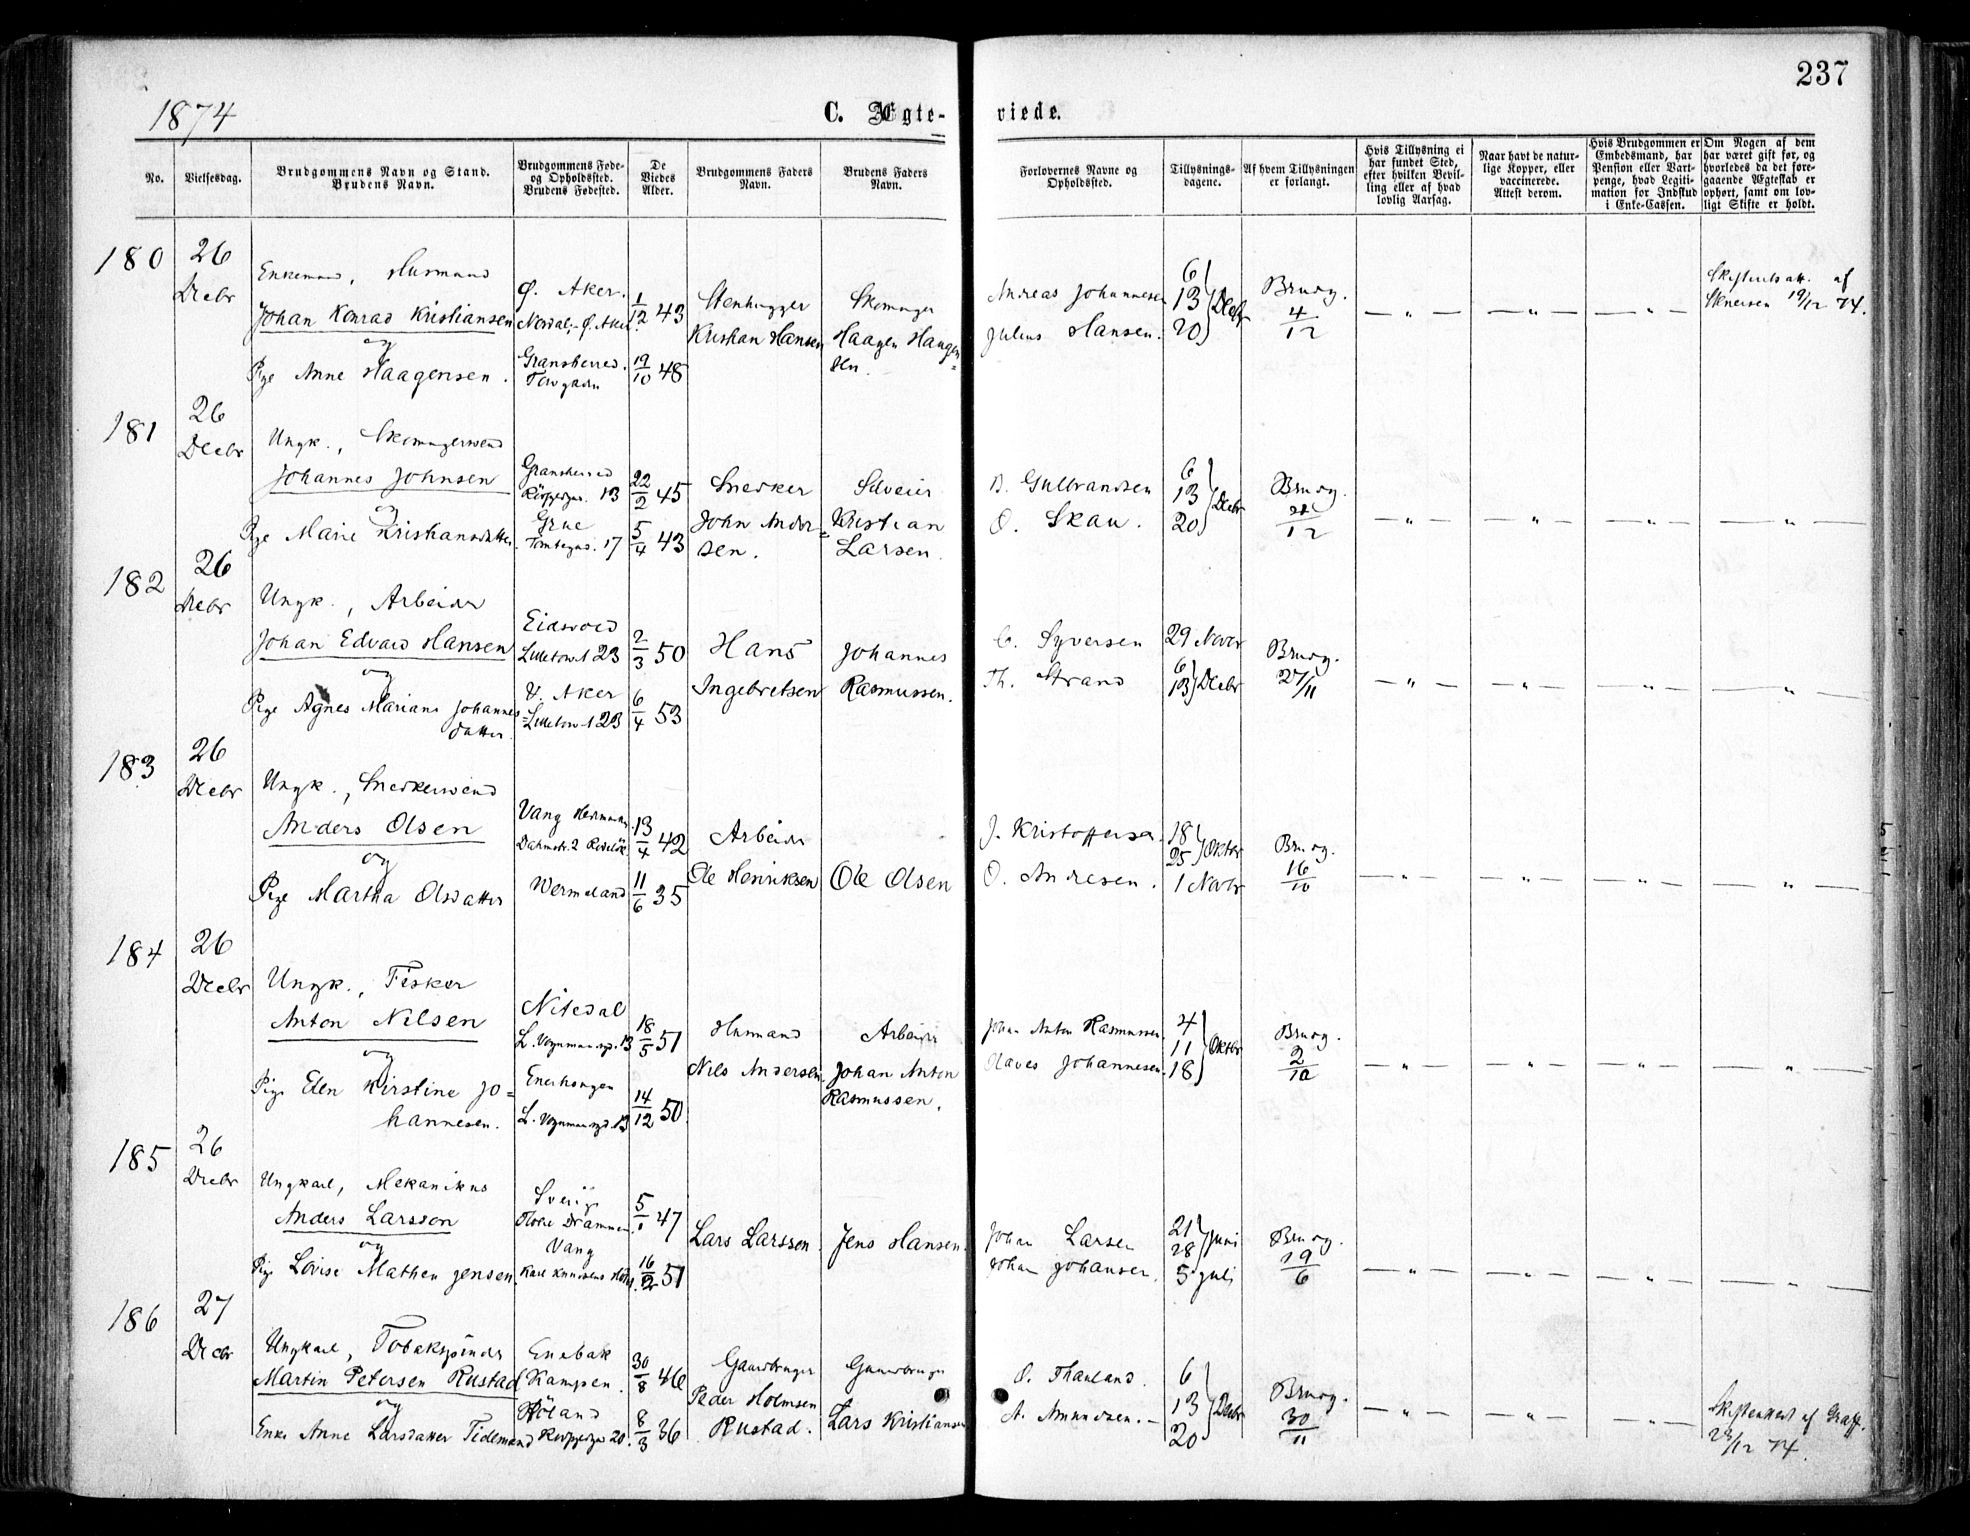 237
1874
C. Ægte-
viede.
No.
Vielsesdag.
Brudgommens Navn og Stand.
Brudens Navn.
Brudgommens Føde-
og Opholdssted.
Brudens Fødested.
De
Viedes
Alder.
Brudgommens Faders
Navn.
Brudens Faders
Navn.
Forlovernes Navne og
Opholdssted.
Tillysnings-
dagene.
Af hvem Tillysningen
er forlangt.
Hvis Tillysning ei
har fundet Sted,
efter hvilken Bevil-
ling eller af hvad
lovlig Aarsag.
Naar havt de natur-
lige Kopper, eller
vaccinerede.
Attest derom.
Hvis Brudgommen er
Embedsmand, har
Pension eller Vart-
penge, hvad Legiti-
mation for Indskud
i Enke-Cassen.
Om Nogen af dem
har været gift før, og
hvorledes da det fore-
gaaende Ægteskab er
ophørt, samt om lov-
ligt Skifte er holdt.
180
26
Decbr
Enkemand, Husmand
Johan Konrad Kristiansen
og
Pige Anne Haagensen.
Ø. Aker.
Nordal, Ø. Aker.
Gransherred.
1/12 43
19/10 48
Stenhugger
Kristian Hansen
Skomager
Haagen Haagen-
sen.
Andreas Johannesen
Julius Hansen.
6
13 Decbr
20
Brudg.
4/12
— " —
— " —
— " —
Skifteretsatt. af
19/12 74.
181
26
Decbr
Ungk., Skomagersvend
Johannes Johnsen
og
Pige Marie Kristiansdatter
Gransherred
13
Grue
Tomtegd. 17
22/2 45
5/4 43
Snedker
John Ander-
sen.
Kristian
Larsen.
B. Gulbrandsen
O. Skau.
6
13 Decbr
20
Brudg.
/12
— " —
— " —
— " —
— " —
182
26
Decbr
Ungk., Arbeider
Johan Edvard Hansen
og
Pige Agnes Mariane Johannes-
datter.
Eidsvold
23
V. Aker
23
2/3 50
6/4 53
Hans
Ingebretsen
Johannes
Rasmussen.
C. Syversen
Th. Strand
29 Novbr
6
13 Decbr
Brudg.
27/11
— " —
— " —
— " —
— " —
183
26
Decbr
Ungk., Snedkersvend
Anders Olsen
og
Pige Martha Olsdatter
Vang Hedemarken
Wermeland
13/4 42
11/6 35
Arbeider
Ole Henriksen
Ole Olsen
J. Kristoffersen
O. Andresen.
18
25 Oktbr
1 Novbr
Brudg.
16/10
— " —
— " —
— " —
— " —
184
26
Decbr
Ungk., Fisker
Anton Nilsen
og
Pige Elen Kirstine Jo-
hannesen.
Nitedal
L. Vognmandsgd. 13
Enerhougen
L. Vognmandsgd. 13
18/5 51
14/12 50
Husmand
Nils Andersen
Arbeider
Johan Anton
Rasmussen.
Johan Anton Rasmussen
Olaves Johannesen.
4
11 Oktbr
18
Brudg.
2/10
— " —
— " —
— " —
— " —
185
26
Decbr
Ungkarl, Mekanikus
Anders Larsson
og
Pige Lovise Mathea Jensen.
Sverig
Drammen
Vang
5/1 47
16/12 51
Lars Larssen.
Jens Hansen.
Johan Larsen
Johan Johansen.
21
28 Juni
5 Juli
Brudg.
19/6
— " —
— " —
— " —
— " —
186
27
Decbr
Ungkarl, Tobakspinder
Martin Petersen Rustad
og
Enke Anne Larsdatter Tidemand
Enebak
Kampen.
Høland
20.
30/8 46
8/3 36
Gaardbruger
Peder Holmsen
Rustad.
Gaardbruger
Lars Kristiansen
O. Thanland.
A. Amundsen.
6
13 Decbr
20
Brudg.
30/11
— " —
— " —
— " —
Skifteattest af Graff.
23/12 74.